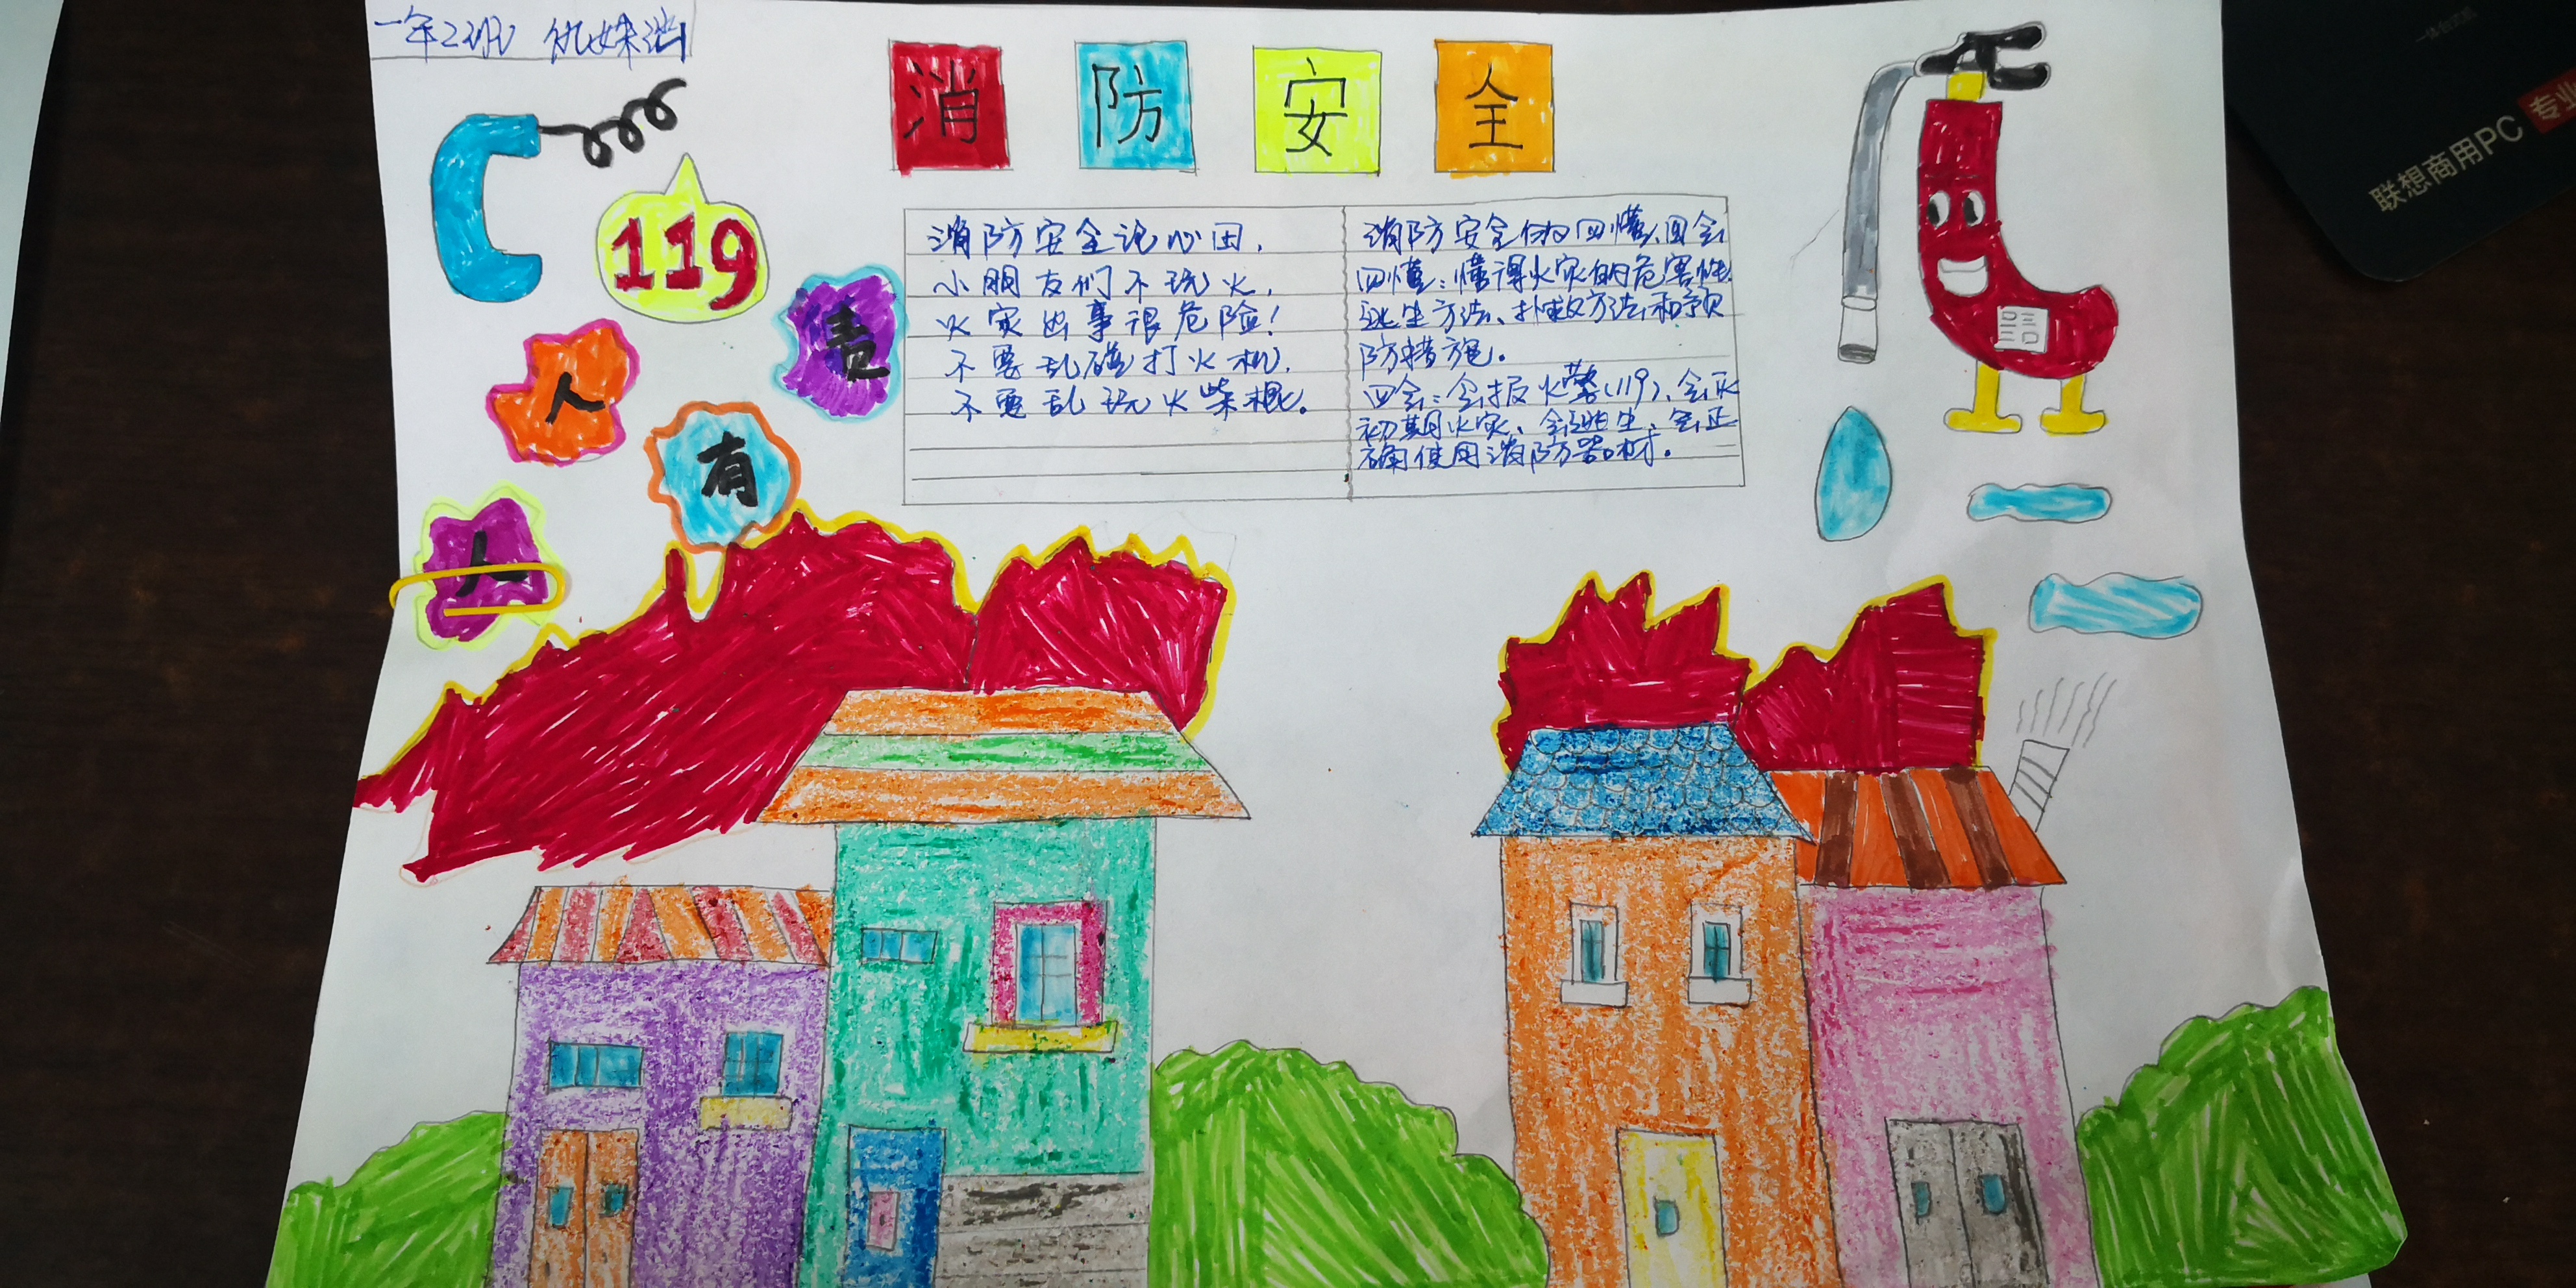 一年2班
消防安全
119
人人有责
消防安全记心田,
小朋友们不玩火,
火灾出事很危险!
不要乱碰打火机,
不要乱玩火柴棍。
消防安全的四懂、四会
四懂:懂得火灾的危害性
逃生方法、扑救方法和预
防措施。
四会:会报火警(119)、会灭
初期火灾、会逃生、会正
确使用消防器材。
联想商用PC 专业